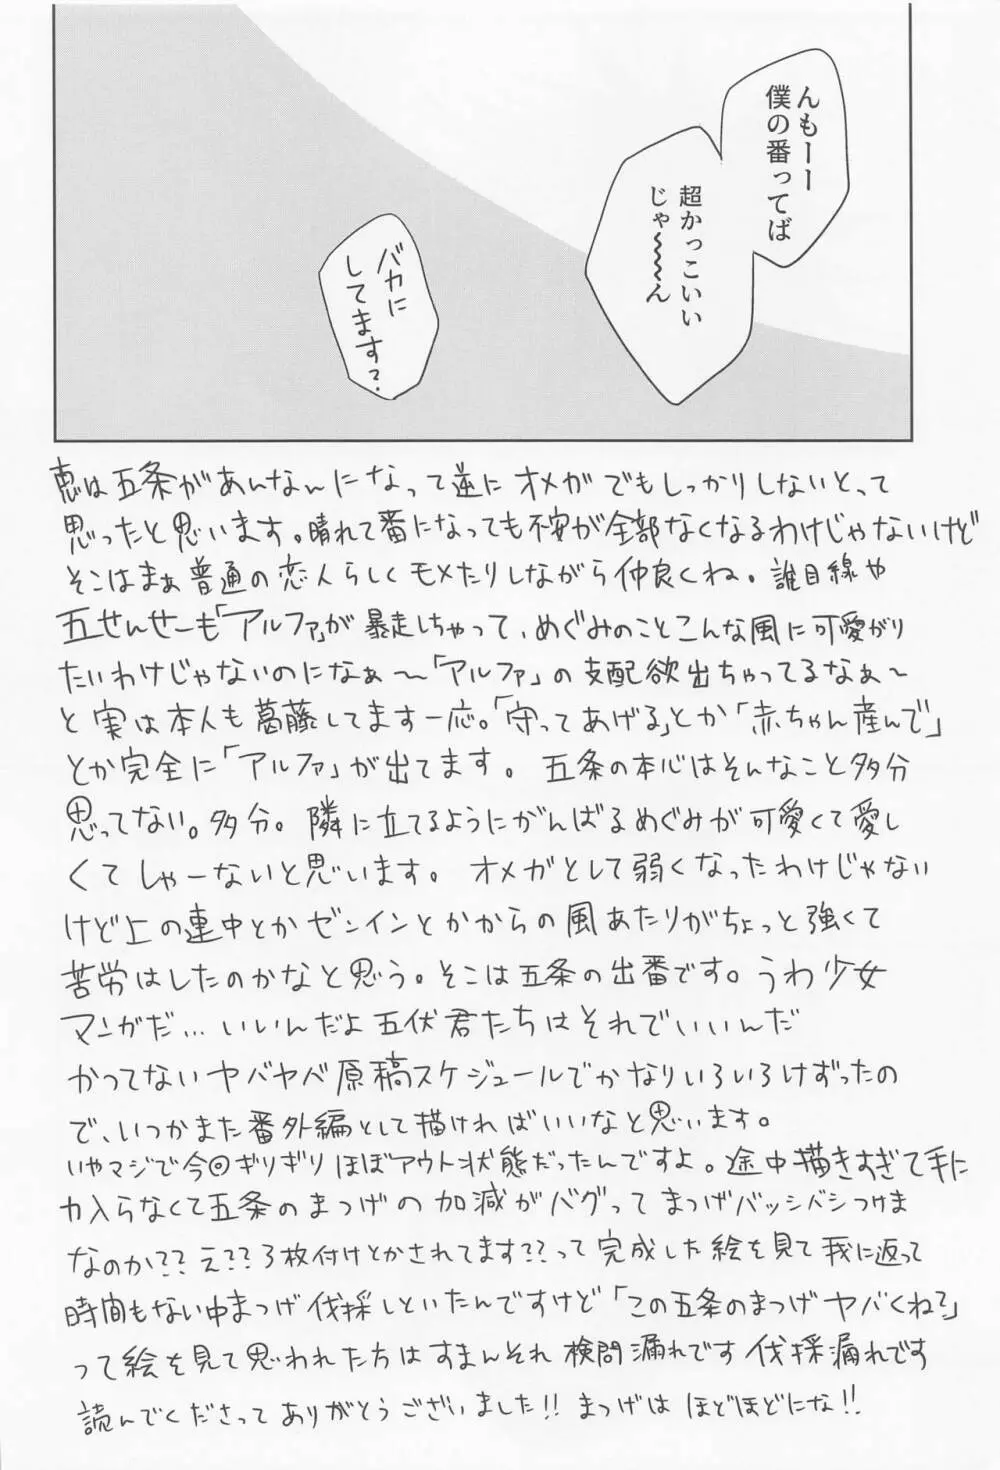 んもーー
僕の番ってば
超かっこいい
じゃ〜〜〜ん
バカに
してます？
恵は五条があんなんになって逆にオメガでもしっかりしないとって
思ったと思います。晴れて番になっても不安が全部なくなるわけじゃないけど
そこはまぁ普通の恋人らしくモメたりしながら仲良くね。誰目線や
五せんせーも「アルファ」が暴走しちゃって、めぐみのことこんな風に可愛がり
たいわけじゃないのになぁ〜「アルファ」の支配欲出ちゃってるなぁ〜
と実は本人も葛藤してます一応。「守ってあげる」とか「赤ちゃん産んで」
とか完全に「アルファ」が出てます。五条の本心はそんなこと多分
思ってない。多分。隣に立てるようにがんばるめぐみが可愛くて愛し
くてしゃーないと思います。オメガとして弱くなったわけじゃない
けど上の連中とかゼンインとかからの風あたりがちょっと強くて
苦労はしたのかなと思う。そこは五条の出番です。うわ少女
マンガだ…いいんだよ五伏君たちはそれでいいんだ
かつてないヤバヤバ原稿スケジュールでかなりいろいろけずったの
で、いつかまた番外編として描ければいいなと思います。
いやマジで今回ギリギリほぼアウト状態だったんですよ。途中描きすぎて手に
力入らなくて五条のまつげの加減がバグってまつげバッシバシつけま
なのか？？え？？3枚付けとかされてます？？って完成した絵を見て我に返って
時間もない中まつげ伐採しといたんですけど「この五条のまつげヤバくね？」
って絵を見て思われた方はすまんそれ検問漏れです伐採漏れです
読んでくださってありがとうございました!! まつげはほどほどにな!!